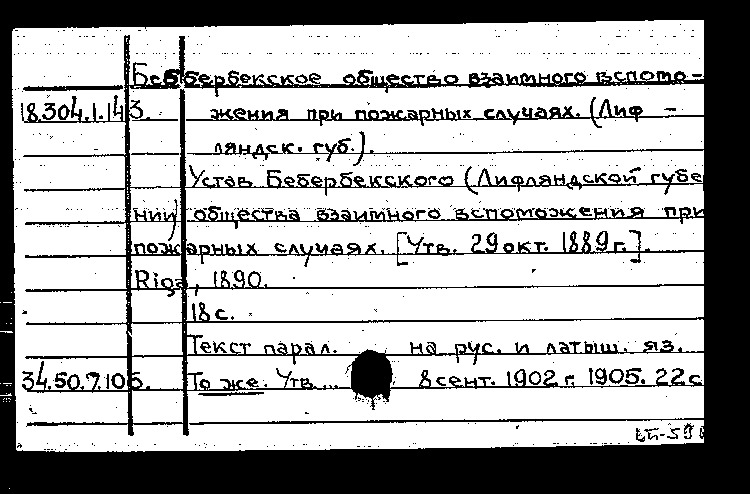 Бебербекское общество взаимного вспомо-
18.304.1.143. жения при пожарных случаях. (Лиф-
ляндск. губ.).
Устав Бебербекского (Лифляндской губе
нии) общества взаимного вспоможения при
пожарных случаях. [Утв. 29 окт. 1889 г.].
Riga, 1890.
18 с.
Текст парал. на рус. и латыш. яз.
34.50.7.105. То же. Утв... 8 сент. 1902 г. 1905. 22 с